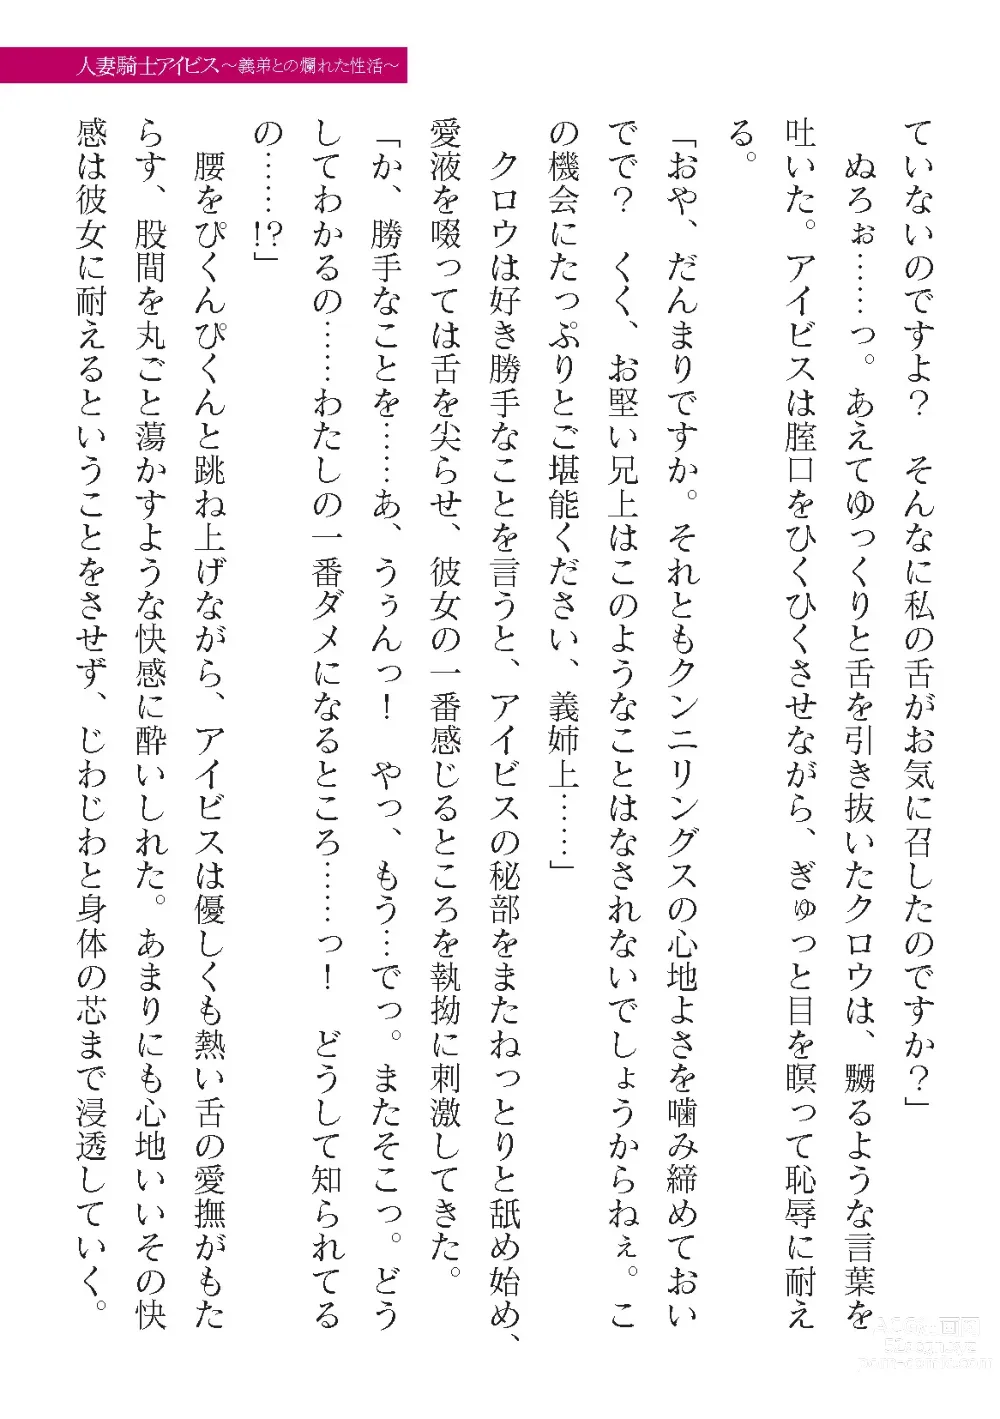 人妻騎士アイビス～義弟との爛れた性活～
ていないのですよ？　そんなに私の舌がお気に召したのですか？」
　ぬろぉ……っ。あえてゆっくりと舌を引き抜いたクロウは、嬲るような言葉を
吐いた。アイビスは膣口をひくひくさせながら、ぎゅっと目を瞑って恥辱に耐え
る。
「おや、だんまりですか。それともクンニリングスの心地よさを噛み締めておい
でで？　くく、お堅い兄上はこのようなことはなされないでしょうからねぇ。こ
の機会にたっぷりとご堪能ください、義姉上……」
　クロウは好き勝手なことを言うと、アイビスの秘部をまたねっとりと舐め始め、
愛液を啜っては舌を尖らせ、彼女の一番感じるところを執拗に刺激してきた。
「か、勝手なことを……あ、うぅんっ！　やっ、もう…でっ。またそこっ。どう
してわかるの……わたしの一番ダメになるところ……っ！　どうして知られてる
の……!?」
　腰をぴくんぴくんと跳ね上げながら、アイビスは優しくも熱い舌の愛撫がもた
らす、股間を丸ごと蕩かすような快感に酔いしれた。あまりにも心地いいその快
感は彼女に耐えるということをさせず、じわじわと身体の芯まで浸透していく。